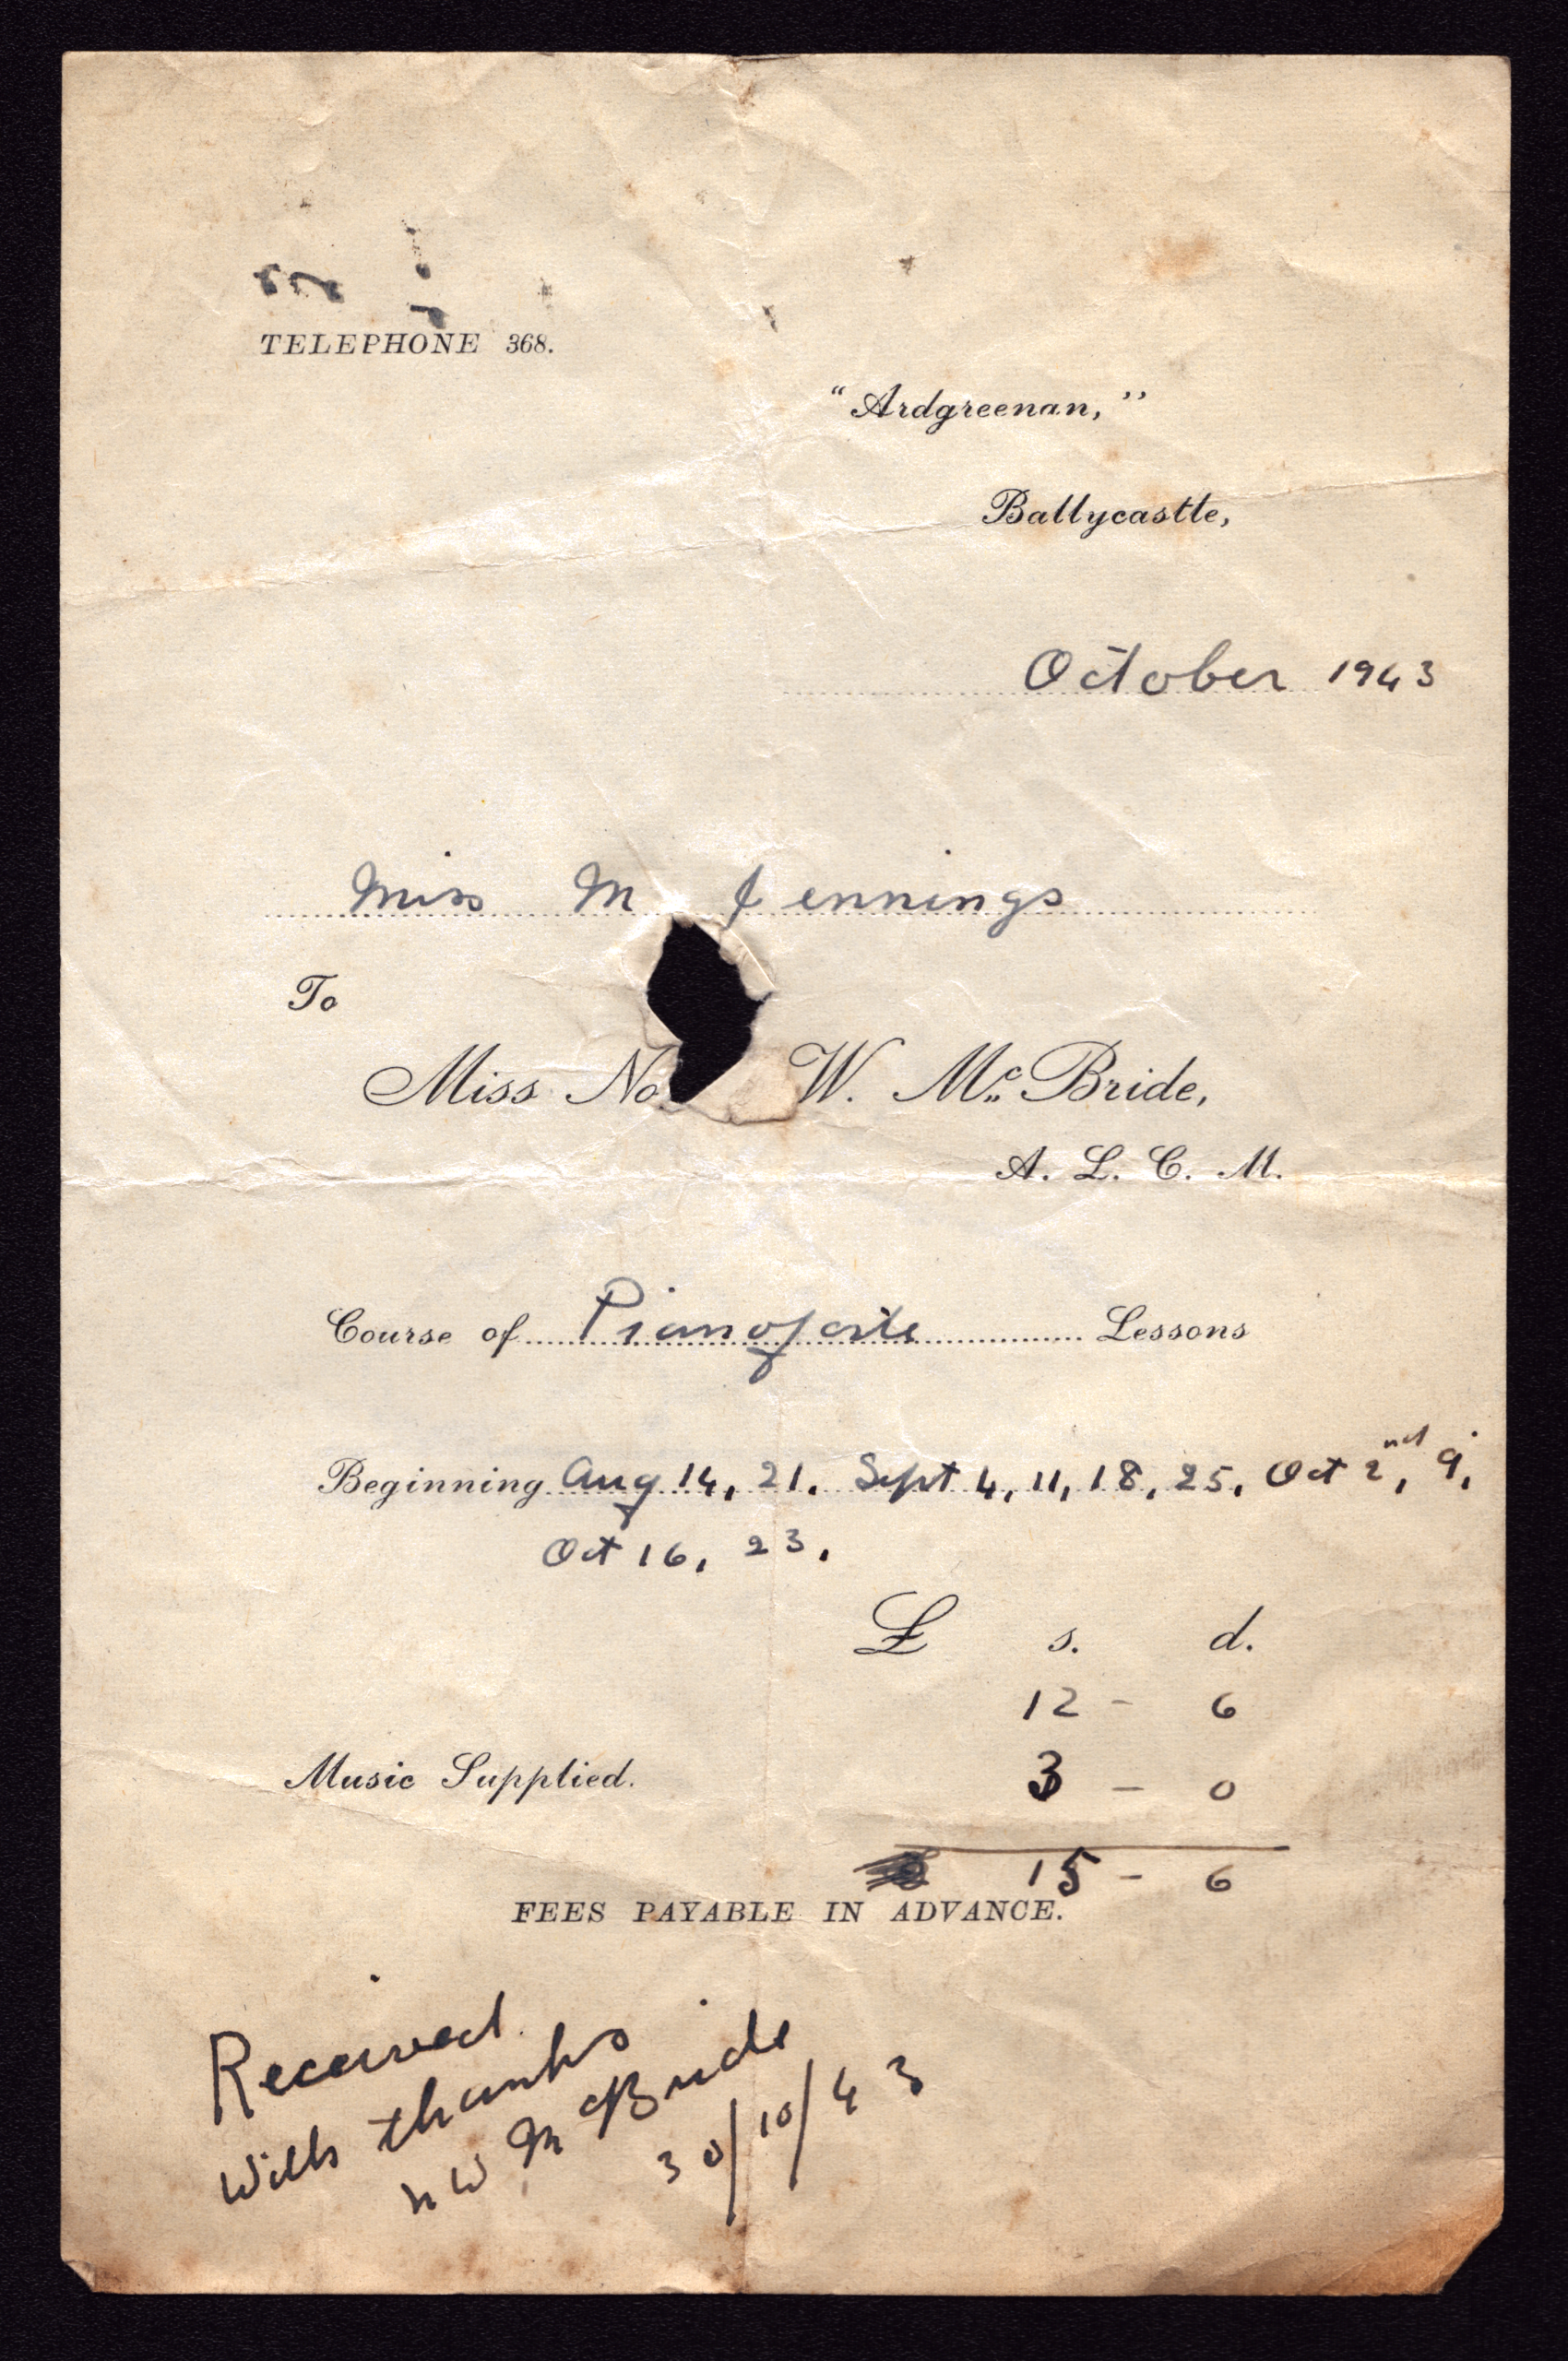 TELEPHONE 368.
"Ardgreenan,"
Ballycastle,
October 1943
Miss M Jennings
To
Miss No W. Mc Bride,
A. L. C. M.
Course of Pianoforte Lessons
Beginning Aug 14, 21. Sept 4, 11, 18, 25, Oct 2nd, 9,
Oct 16, 23.
£ s. d.
12 - 6
Music Supplied. 3 - 0
15 - 6
FEES PAYABLE IN ADVANCE.
Received
With thanks
N W McBride
30/10/43